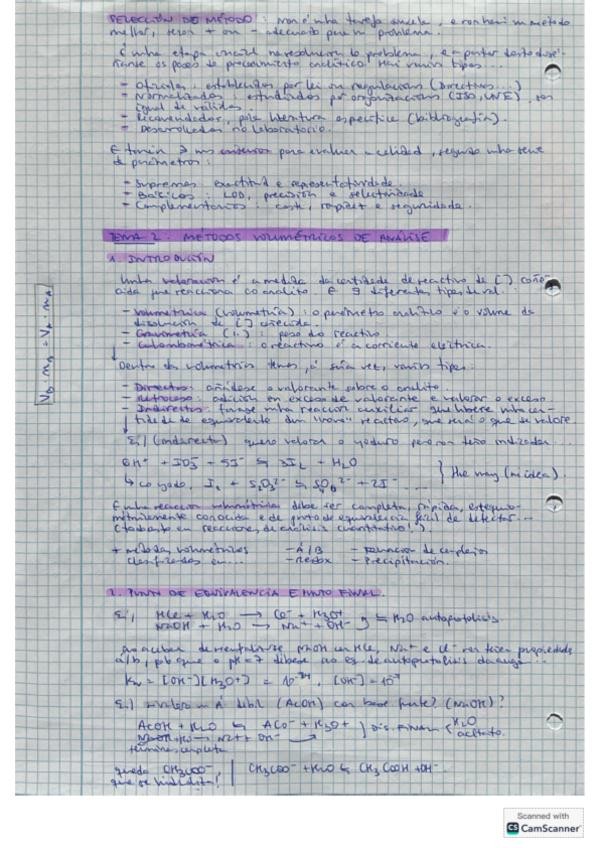 SELECCIÓN DE MÉTODO: non é unha tarefa sinxela, e non hai un método
mellor, senón + ou - adecuado para un problema.
É unha etapa crucial na resolución do problema, e a partir desta
os pasos do procedemento analítico. Hai varios tipos...
- Oficiais: establecidos por lei ou regulación (Directivas...)
- Normalizados: estudados por organizacións (ISO, UNE), son
igual de válidos.
- Recomendados, pola literatura específica (bibliografía).
- Desenvolvidos no laboratorio.
E temén uns criterios para evaluar a calidad, seguindo unha serie
de parámetros:
- Supremos: exactitud e representatividade
- Básicos: LOD, precisión e selectividade
- Complementarios: coste, rapidez e seguridade.
TEMA 2: METODOS VOLUMÉTRICOS DE ANÁLISE
1. INTRODUCIÓN
Unha valoración é a medida da cantidade de reactivo de [ ] coñe-
cida que reacciona co analito. E diferentes tipos de val.:
- Volumétrica (volumetría): o parámetro analítico é o volume da
disolución de [ ] coñecida.
- Gravimetría ("): peso do reactivo.
- Culombimétrica: o reactivo é a corriente eléctrica.
Dentro das volumetrías temos, á súa vez, varios tipos:
- Directas: añádese o valorante sobre o analito.
- Retroceso: adición en exceso de valorante e valorar o exceso.
- Indirectas: faise unha reacción auxiliar que libere unha can-
tidade de equivalente dun "novo" reactivo, que será o que se valore.
Ex/ (indirecta) quero valorar o yoduro pero non teño indicador...
6H⁺ + IO₃⁻ + 5I⁻ ⇆ 3I₂ + H₂O
↳ co yodo, I₂ + S₂O₃²⁻ ⇆ S₄O₆²⁻ + 2I⁻ ...
E unha reacción volumétrica debe ser completa, rápida, estequio-
metricamente coñecida e de punto de equivalencia fácil de detectar...
(tamén en reaccións de análisis cuantitativo!)
+ métodos volumétricos - A/B - Formación de complejos
clasificados en... - Redox - Precipitación.
2. PUNTO DE EQUIVALENCIA E PUNTO FINAL.
Ex/ HCl + H₂O → Cl⁻ + H₃O⁺
NaOH + H₂O → Na⁺ + OH⁻ ⇆ H₂O autoprotolisis.
Ao acabar de neutralizar NaOH con HCl, Na⁺ e Cl⁻ non teñen propiedades
a/b, polo que o pH = 7 débese ao eq. de autoprotolisis da auga...
Kw = [OH⁻][H₃O⁺] = 10⁻¹⁴, [OH⁻] = 10⁻⁷
Ex/ E valorar un A. débil (AcOH) con base forte? (NaOH)?
AcOH + H₂O ⇆ AcO⁻ + H₃O⁺
NaOH + H₂O → Na⁺ + OH⁻ Dis. FINAL { H₂O
acetato.
completa
queda CH₃COO⁻ | CH₃COO⁻ + H₂O ⇆ CH₃COOH + OH⁻.
que se hidroliza!
Scanned with
CS CamScanner